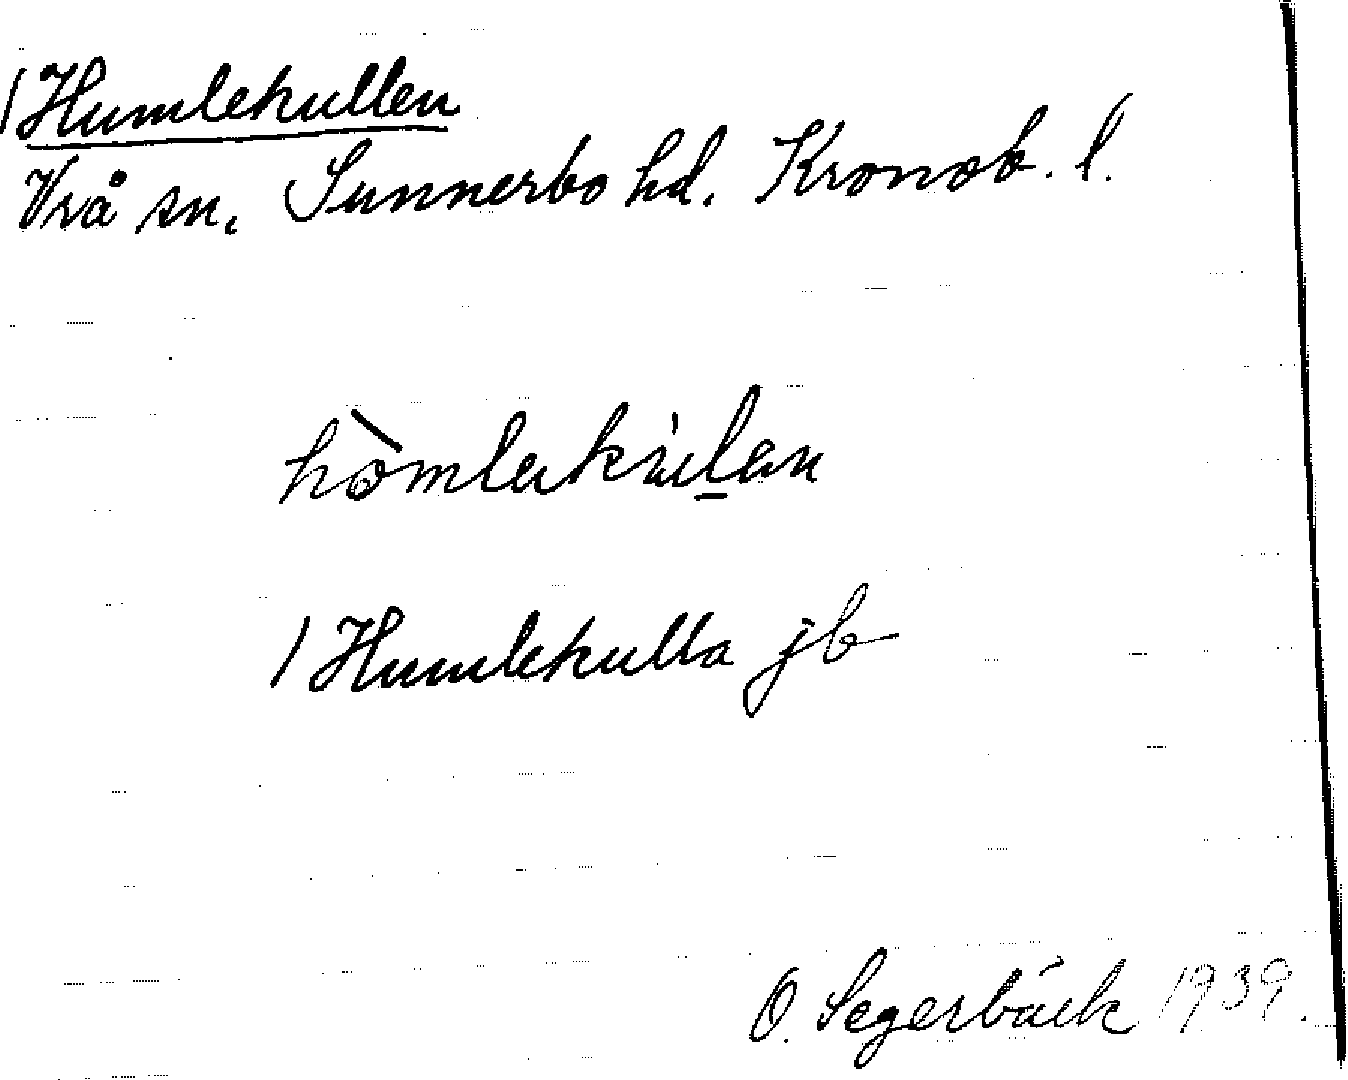 / Humlekullen
Vrå sn. Sunnerbo hd. Kronob. l.
hòmlekúlen
/ Humlekulla jb
O. Segerbäck 1939.